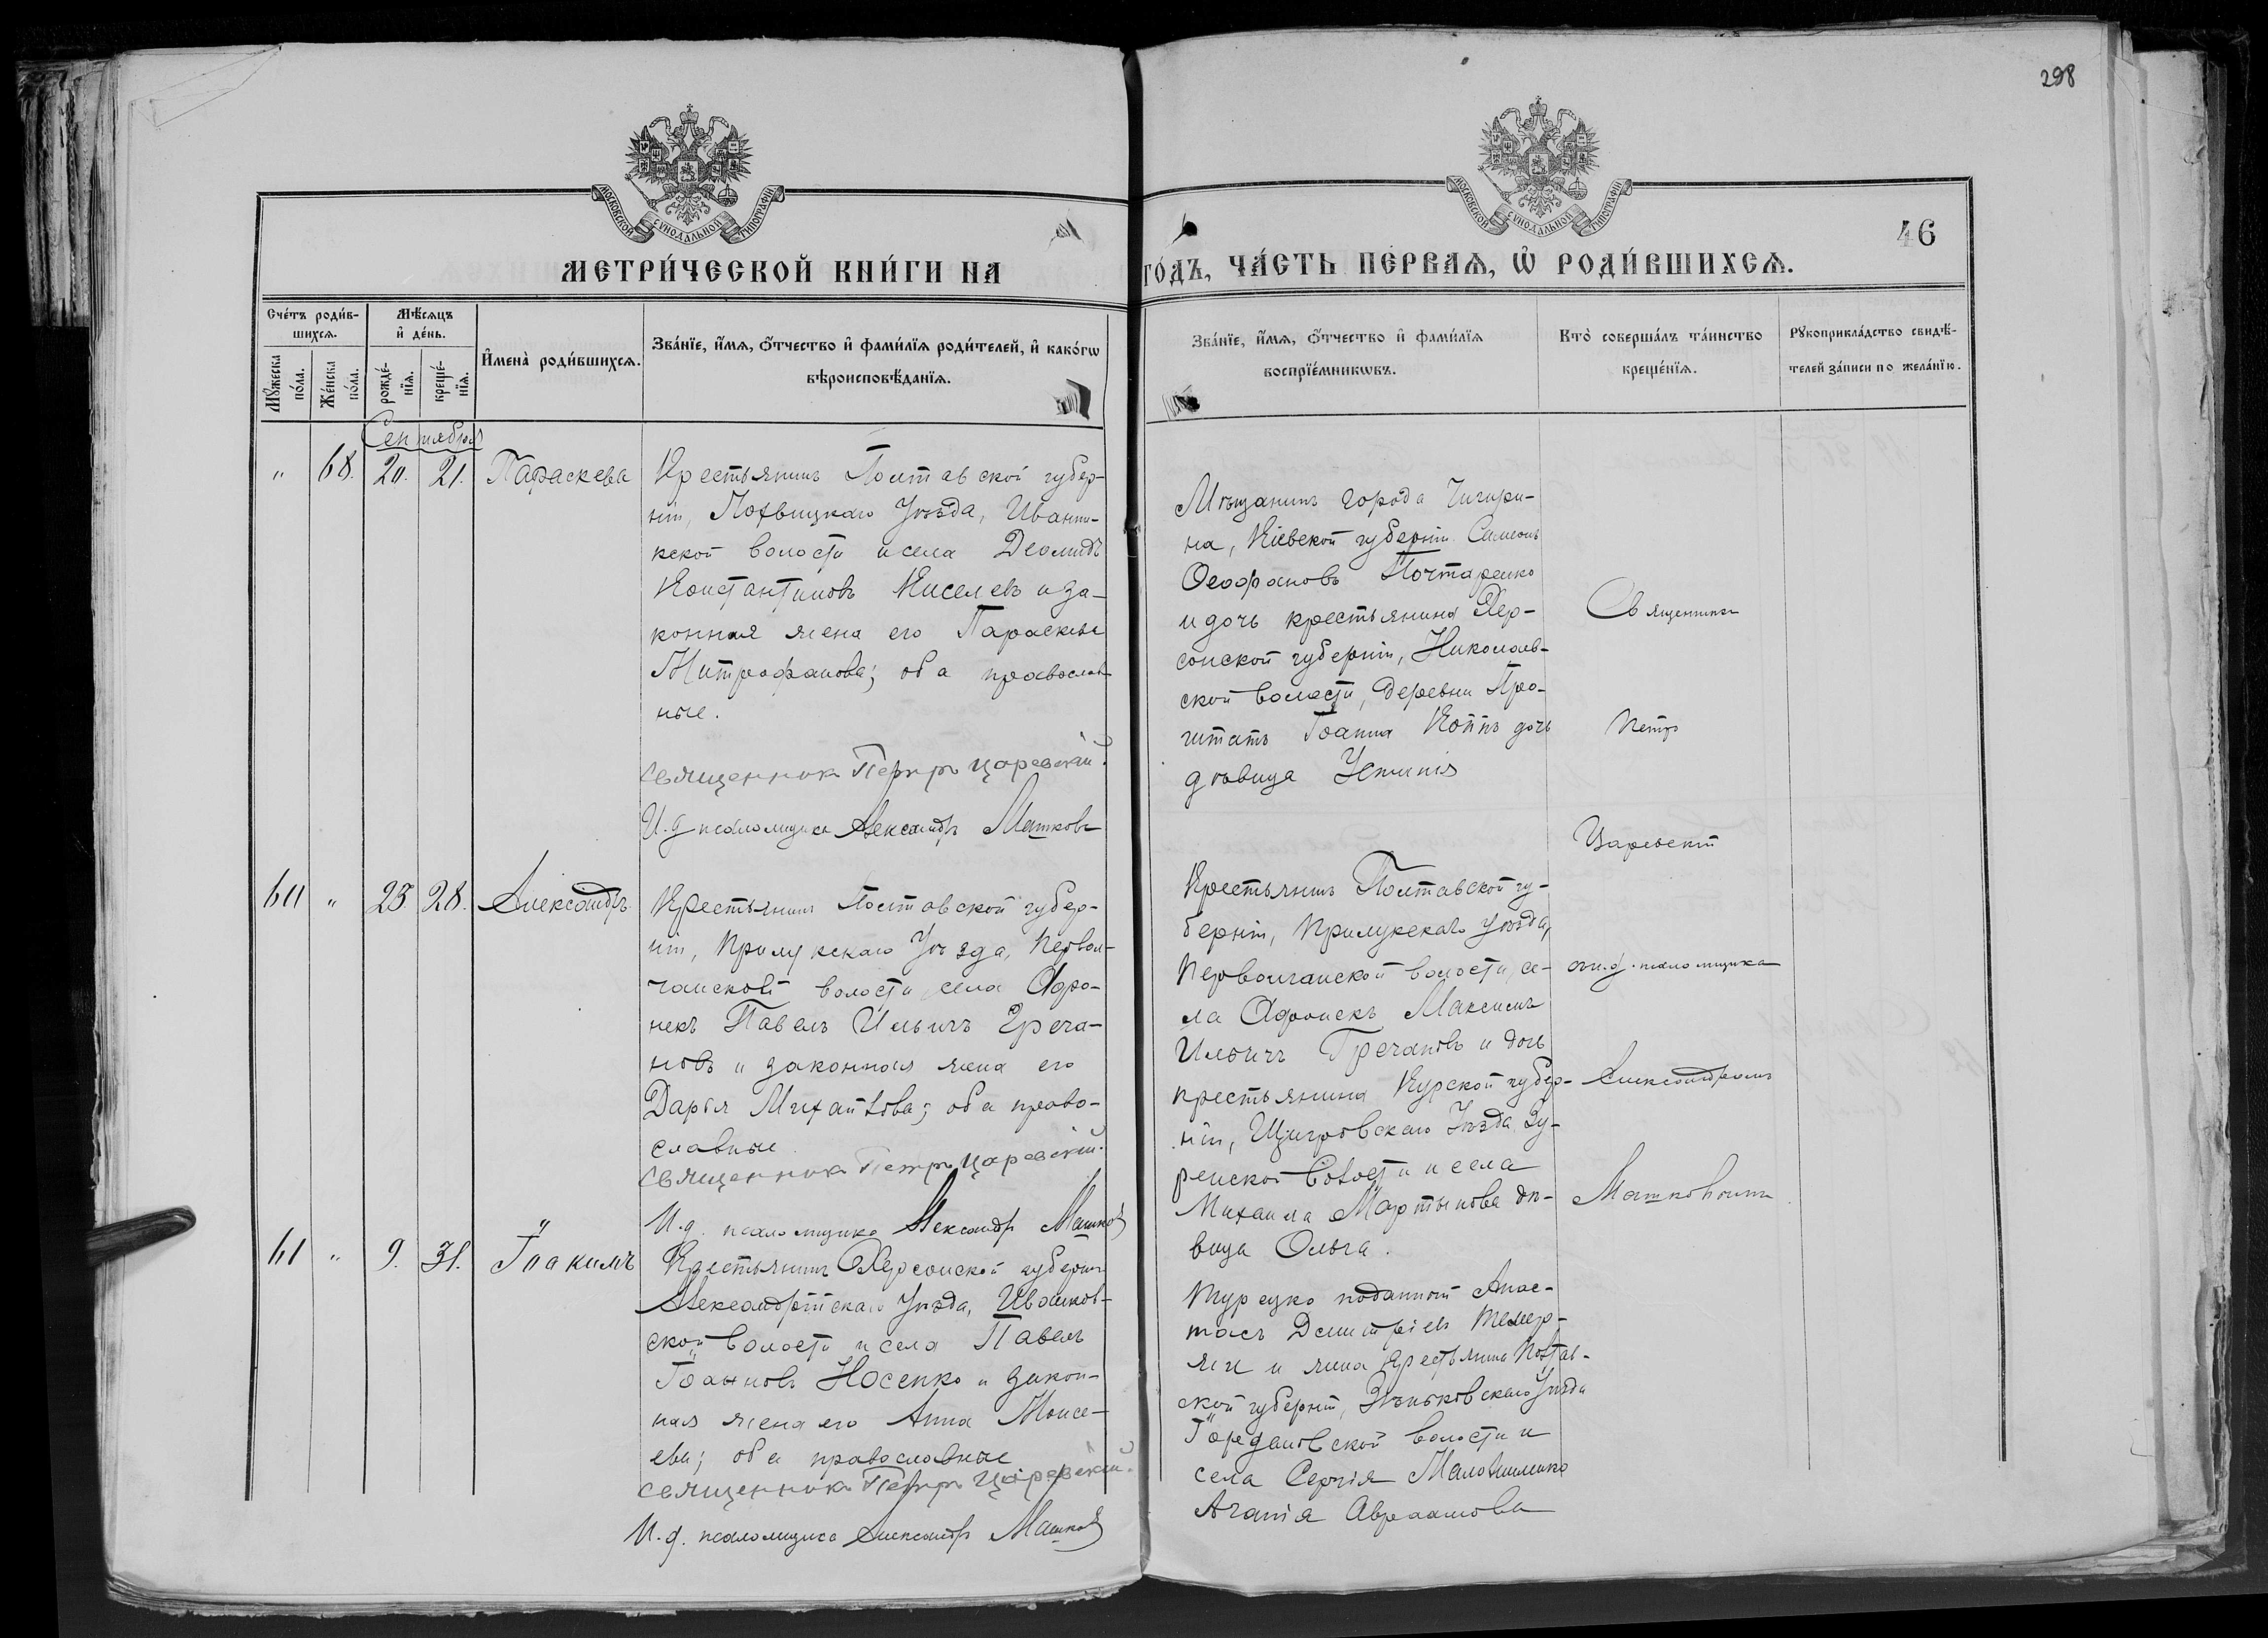 298
МОСКОВСКОЙ СѴНОДАЛЬНОЙ ТИПОГРАФІИ
МОСКОВСКОЙ СѴНОДАЛЬНОЙ ТИПОГРАФІИ
46
МЕТРИ́ЧЕСКОЙ КНИ́ГИ НА
ГО́ДЪ, ЧА́СТЬ ПЕ́РВАѦ, Ѡ҆ РОДИ́ВШИХСѦ.
Сче́тъ роди́в-
шихсѧ.
Мꙋ́жеска по́ла.
Же́нска по́ла.
Мѣ́сѧцъ
и҆ де́нь.
рожде́-
нїѧ.
креще́-
нїѧ.
И҆мена̀ роди́вшихсѧ.
Зва́нїе, и҆́мѧ, ѻ҆́тчество и҆ фами́лїѧ роди́телей, и҆ како́гѡ
вѣроисповѣ́данїѧ.
Зва́нїе, и҆́мѧ, ѻ҆́тчество и҆ фами́лїѧ
воспрїе́мникѡвъ.
Кто̀ соверша́лъ та́инство
креще́нїѧ.
Рꙋкоприкла́дство свидѣ́-
телей за́писи по жела́нїю.
Сентября
" 68. 20. 21. Параскева
Крестьянинъ Полтавской губер-
ніи, Лохвицкаго Уѣзда,
волости и села Деомидъ
Константиновъ Киселевъ и за-
конная жена его Параскева
Митрофанова; оба православ-
ные.
Священникъ Петръ Царевскій.
И.д. псаломщика Александръ Машковъ
Мѣщанинъ города Чигири-
на, Кіевской губерніи Симеонъ
Ѳеофановъ Почтаренко
и дочь крестьянина Хер-
сонской губерніи, Николаев-
ской волости, деревни
Іоанна дочь
дѣвица
Священникъ
Петръ
Царевскій
60 " 25. 28. Александръ
Крестьянинъ Полтавской губер-
ніи, Прилукскаго Уѣзда,
волости села
Павелъ Ильичъ
и законная жена его
Дарья Михайлова; оба право-
славные
Священникъ Петръ Царевскій.
И.д. псаломщика Александръ Машковъ
Крестьянинъ Полтавской гу-
берніи, Прилукскаго Уѣзда,
волости, се-
ла Максимъ
Ильичъ Гречановъ и дочь
крестьянина Курской губер-
ніи, Щигровскаго Уѣзда
волости и села
Михаила Мартынова дѣ-
вица Ольга.
съ и.д. псаломщика
Александромъ
Машковымъ
61 " 9. 31. Іоакимъ
Крестьянинъ Херсонской губерніи
Александрійскаго Уѣзда, Ивашков-
ской волости и села Павелъ
Іоанновъ Носенко и закон-
ная жена его Анна Моисе-
ева; оба православные
Священникъ Петръ Царевскій.
И.д. псаломщика Александръ Машковъ
Турецко подданный Анас-
тасъ Димитріевъ
и жена крестьянина Полтав-
ской губерніи, Зѣньковскаго Уѣзда
волости и
села Сергія
Агапія Авраамова